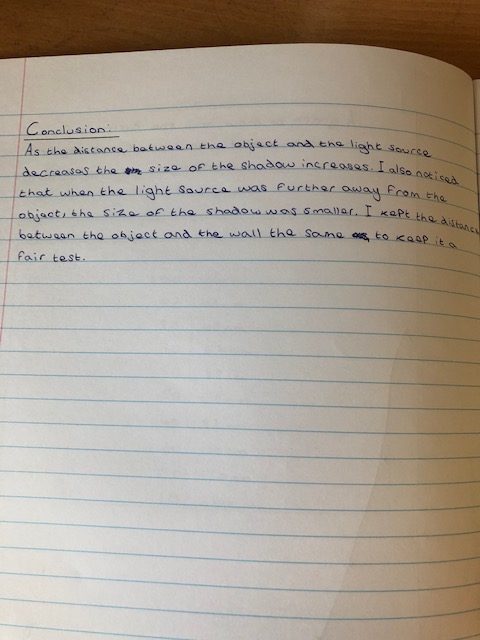 Conclusion:
As the distance between the object and the light source
decreases the size of the shadow increases. I also noticed
that when the light source was further away from the
object, the size of the shadow was smaller. I kept the distance
between the object and the wall the same, to keep it a
fair test.